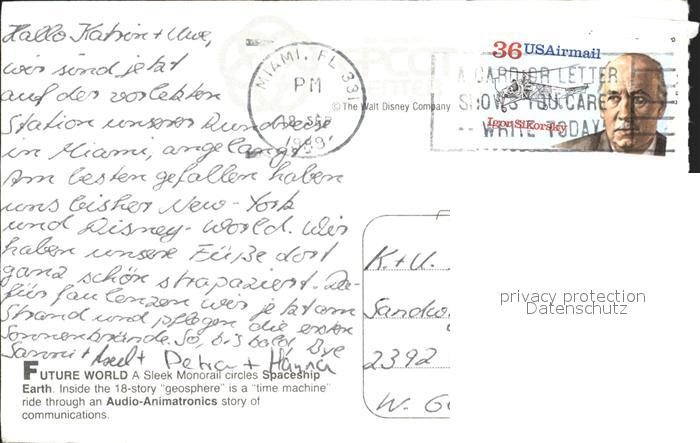 Hallo Katrin + Uwe,
wir sind jetzt
auf der vorletzten
Station unserer Rundreise
in Miami, angelangt.
Am besten gefallen haben
uns bisher New-York
und Disney-World. Wir
haben unsere Füße dort
ganz schön strapaziert. Da-
für faulenzen wir jetzt am
Strand und pflegen die ersten
Sonnenbrände. So, bis bald Bye
Sanni + Axel + Petra + Hanna
FUTURE WORLD A Sleek Monorail circles Spaceship
Earth. Inside the 18-story "geosphere" is a "time machine"
ride through an Audio-Animatronics story of
communications.
EPCOT
CENTER
© The Walt Disney Company
MIAMI, FL 331
PM
SEP
1989
36 USAirmail
Igor Sikorsky
A CARD OR LETTER
SHOWS YOU CARE
-- WRITE TODAY
K. + U.
2392
W. G
privacy protection
Datenschutz